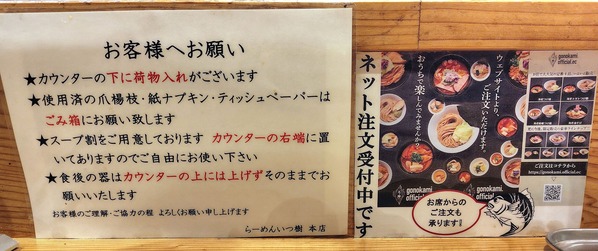 お客様へお願い
★カウンターの下に荷物入れがございます
★使用済の爪楊枝・紙ナプキン・ティッシュペーパーは
ごみ箱にお願い致します
★スープ割をご用意しております カウンターの右端に置
いてありますのでご自由にお使い下さい
★食後の器はカウンターの上には上げずそのままでお
願いいたします
お客様のご理解・ご協力の程 よろしくお願い申し上げます
らーめんいつ樹 本店
ネット注文受付中です
gonokami
official.ec
ウェブサイトより、
ご注文いただけます。
おうちで楽しんでみませんか?
gonokami
official.ec
ご注文はコチラから
https://gonokami.official.ec
お席からの
ご注文も
承ります!